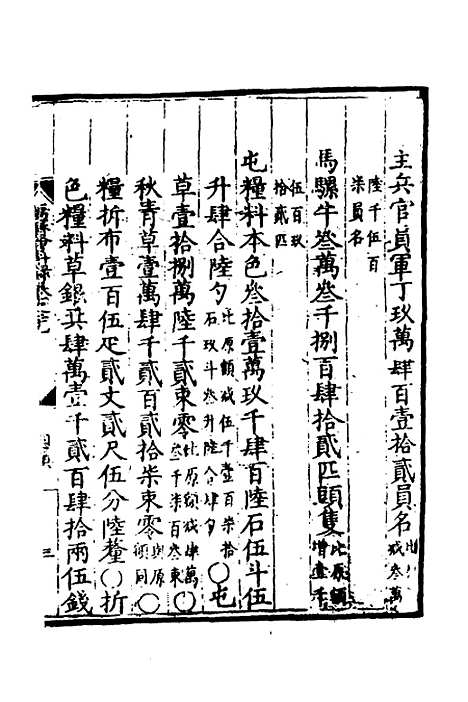 主兵官員軍丁玖萬肆百壹拾貳員名比
減叁萬
陸千伍百
柒員名
馬騾牛叁萬叁千捌百肆拾貳匹頭隻比原額
增壹千
伍百玖
拾貳匹
屯糧料本色叁拾壹萬玖千肆百陸石伍斗伍
升肆合陸勺比原額減伍千壹百柒拾
石玖斗叁升陸合肆勺○屯
草壹拾捌萬陸千貳束零比原額減肆萬
叁千柒百叁束○
秋青草壹萬肆千貳百貳拾柒束零與原
額同○
糧折布壹百伍疋貳丈貳尺伍分陸釐○折
色糧料草銀共肆萬壹千貳百肆拾兩伍錢
三